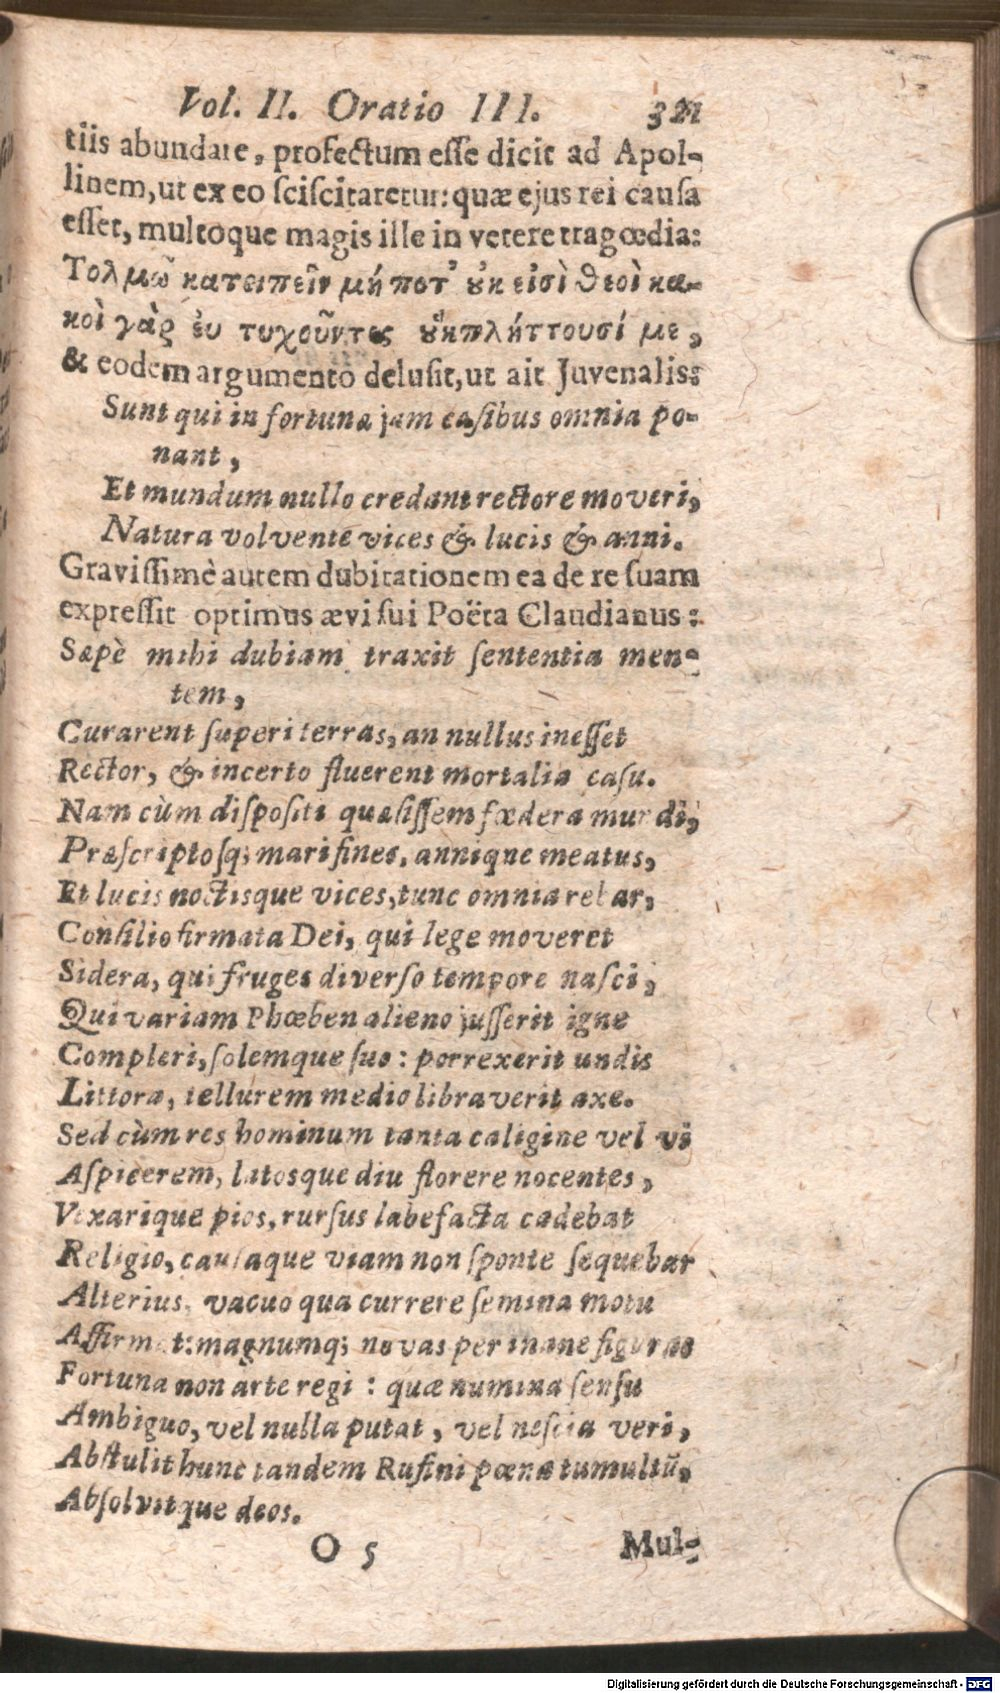 Vol. II. Oratio III. 321
tiis abundare, profectum esse dicit ad Apol-
linem, ut ex eo sciscitaretur: quæ ejus rei causa
esset, multoque magis ille in vetere tragœdia:
Τολμῶ κατειπεῖν μή ποτ' ȣκ εἰσὶ θεοὶ κα-
κοὶ γὰρ ἐυ τυχοῦντες ȣκπλήττουσί με,
& eodem argumento delusit, ut ait Juvenalis:
Sunt qui in fortuna jam casibus omnia po-
nant,
Et mundum nullo credant rectore moveri,
Natura volvente vices & lucis & anni.
Gravissimè autem dubitationem ea de re suam
expressit optimus ævi sui Poëta Claudianus:
Sæpè mihi dubiam traxit sententia men-
tem,
Curarent superi terras, an nullus inesset
Rector, & incerto fluerent mortalia casu.
Nam cùm dispositi quæsissem fœdera mundi,
Præscriptosq; mari fines, annique meatus,
Et lucis noctisque vices, tunc omnia rebar,
Consilio firmata Dei, qui lege moveret
Sidera, qui fruges diverso tempore nasci,
Qui variam Phœben alieno jusserit igne
Compleri, solemque suo: porrexerit undis
Littora, tellurem medio libraverit axe.
Sed cùm res hominum tanta caligine vel vi
Aspicerem, lætosque diu florere nocentes,
Vexarique pios, rursus labefacta cadebat
Religio, causaque viam non sponte sequebar
Alterius, vacuo qua currere semina motu
Affirmat: magnumq; novas per inane figuras
Fortuna non arte regi: quæ numina sensu
Ambiguo, vel nulla putat, vel nescia veri,
Abstulit hunc tandem Rufini pœna tumultū,
Absolvitque deos.
O 5 Mul-
Digitalisierung gefördert durch die Deutsche Forschungsgemeinschaft - DFG